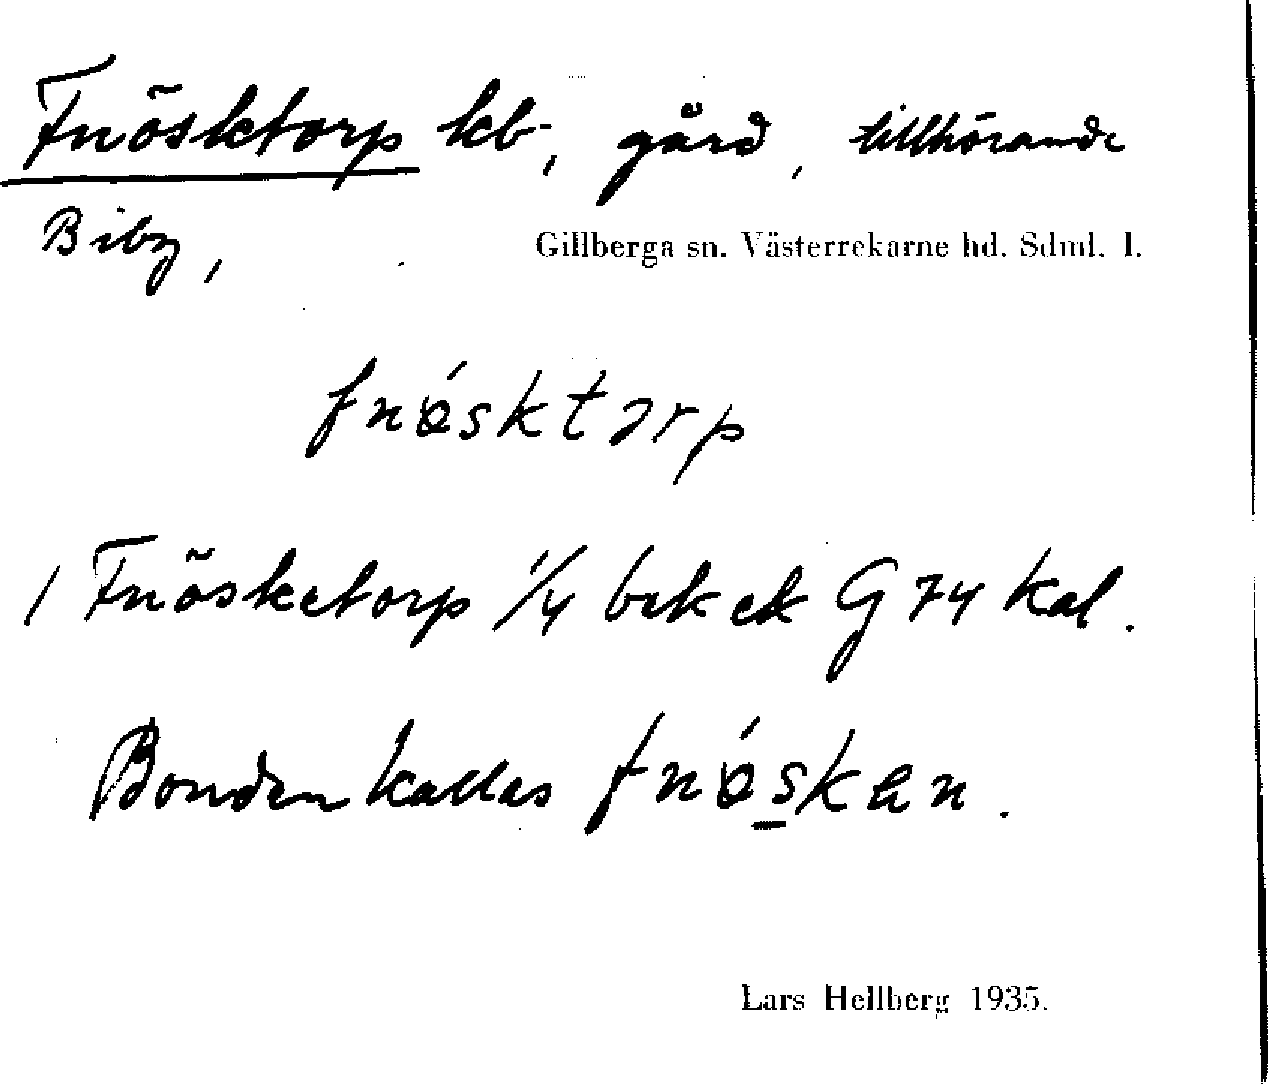 Fnösktorp kb, gård, tillhörande
Biby,
Gillberga sn. Västerrekarne hd. Sdml. l.
fnǿsktɔrp
/ Fnösketorp 1/4 brk ek G 74 kal.
Bonden kallas fnǿskɐn.
Lars Hellberg 1935.